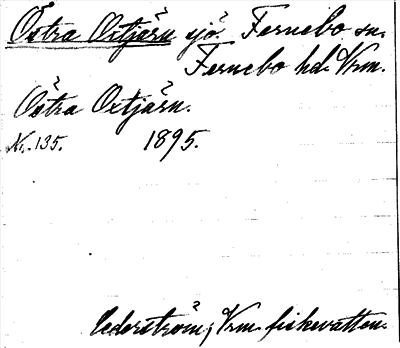 Östra Oxtjärn sjö. Fernebo sn.
Fernebo hd. Vrm.
Östra Oxtjärn.
Nr. 135. 1895.
Cederström, Vrm. fiskevatten.